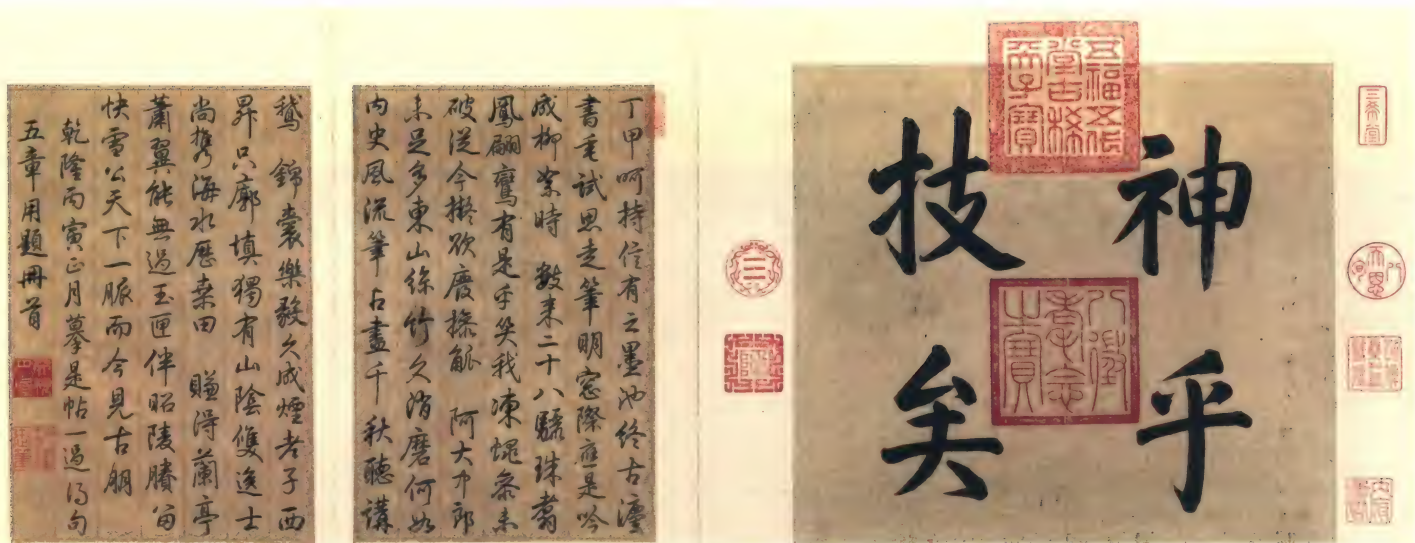 三希堂
五福五代
堂古稀
天子寶
神乎
技矣
八徵
耄念
之寶
丁甲呵持信有之墨池終古
書毫試思走筆明窗際應是吟
成柳絮時 數來二十八驪珠翥
鳳翩鸞有是乎笑我凍蠅參未
破從今擬欲廢操觚 阿大中郎
未足多東山絲竹久消磨何如
內史風流筆占盡千秋聽講
鵞 錦囊樂毅久成煙老子西
昇只廓填獨有山陰雙逸士
尚攜海水歷桑田 賺得蘭亭
蕭翼能無過玉匣伴昭陵賸留
快雪公天下一脈而今見古朋
乾隆丙寅正月摹是帖一過得句
五章用題冊首